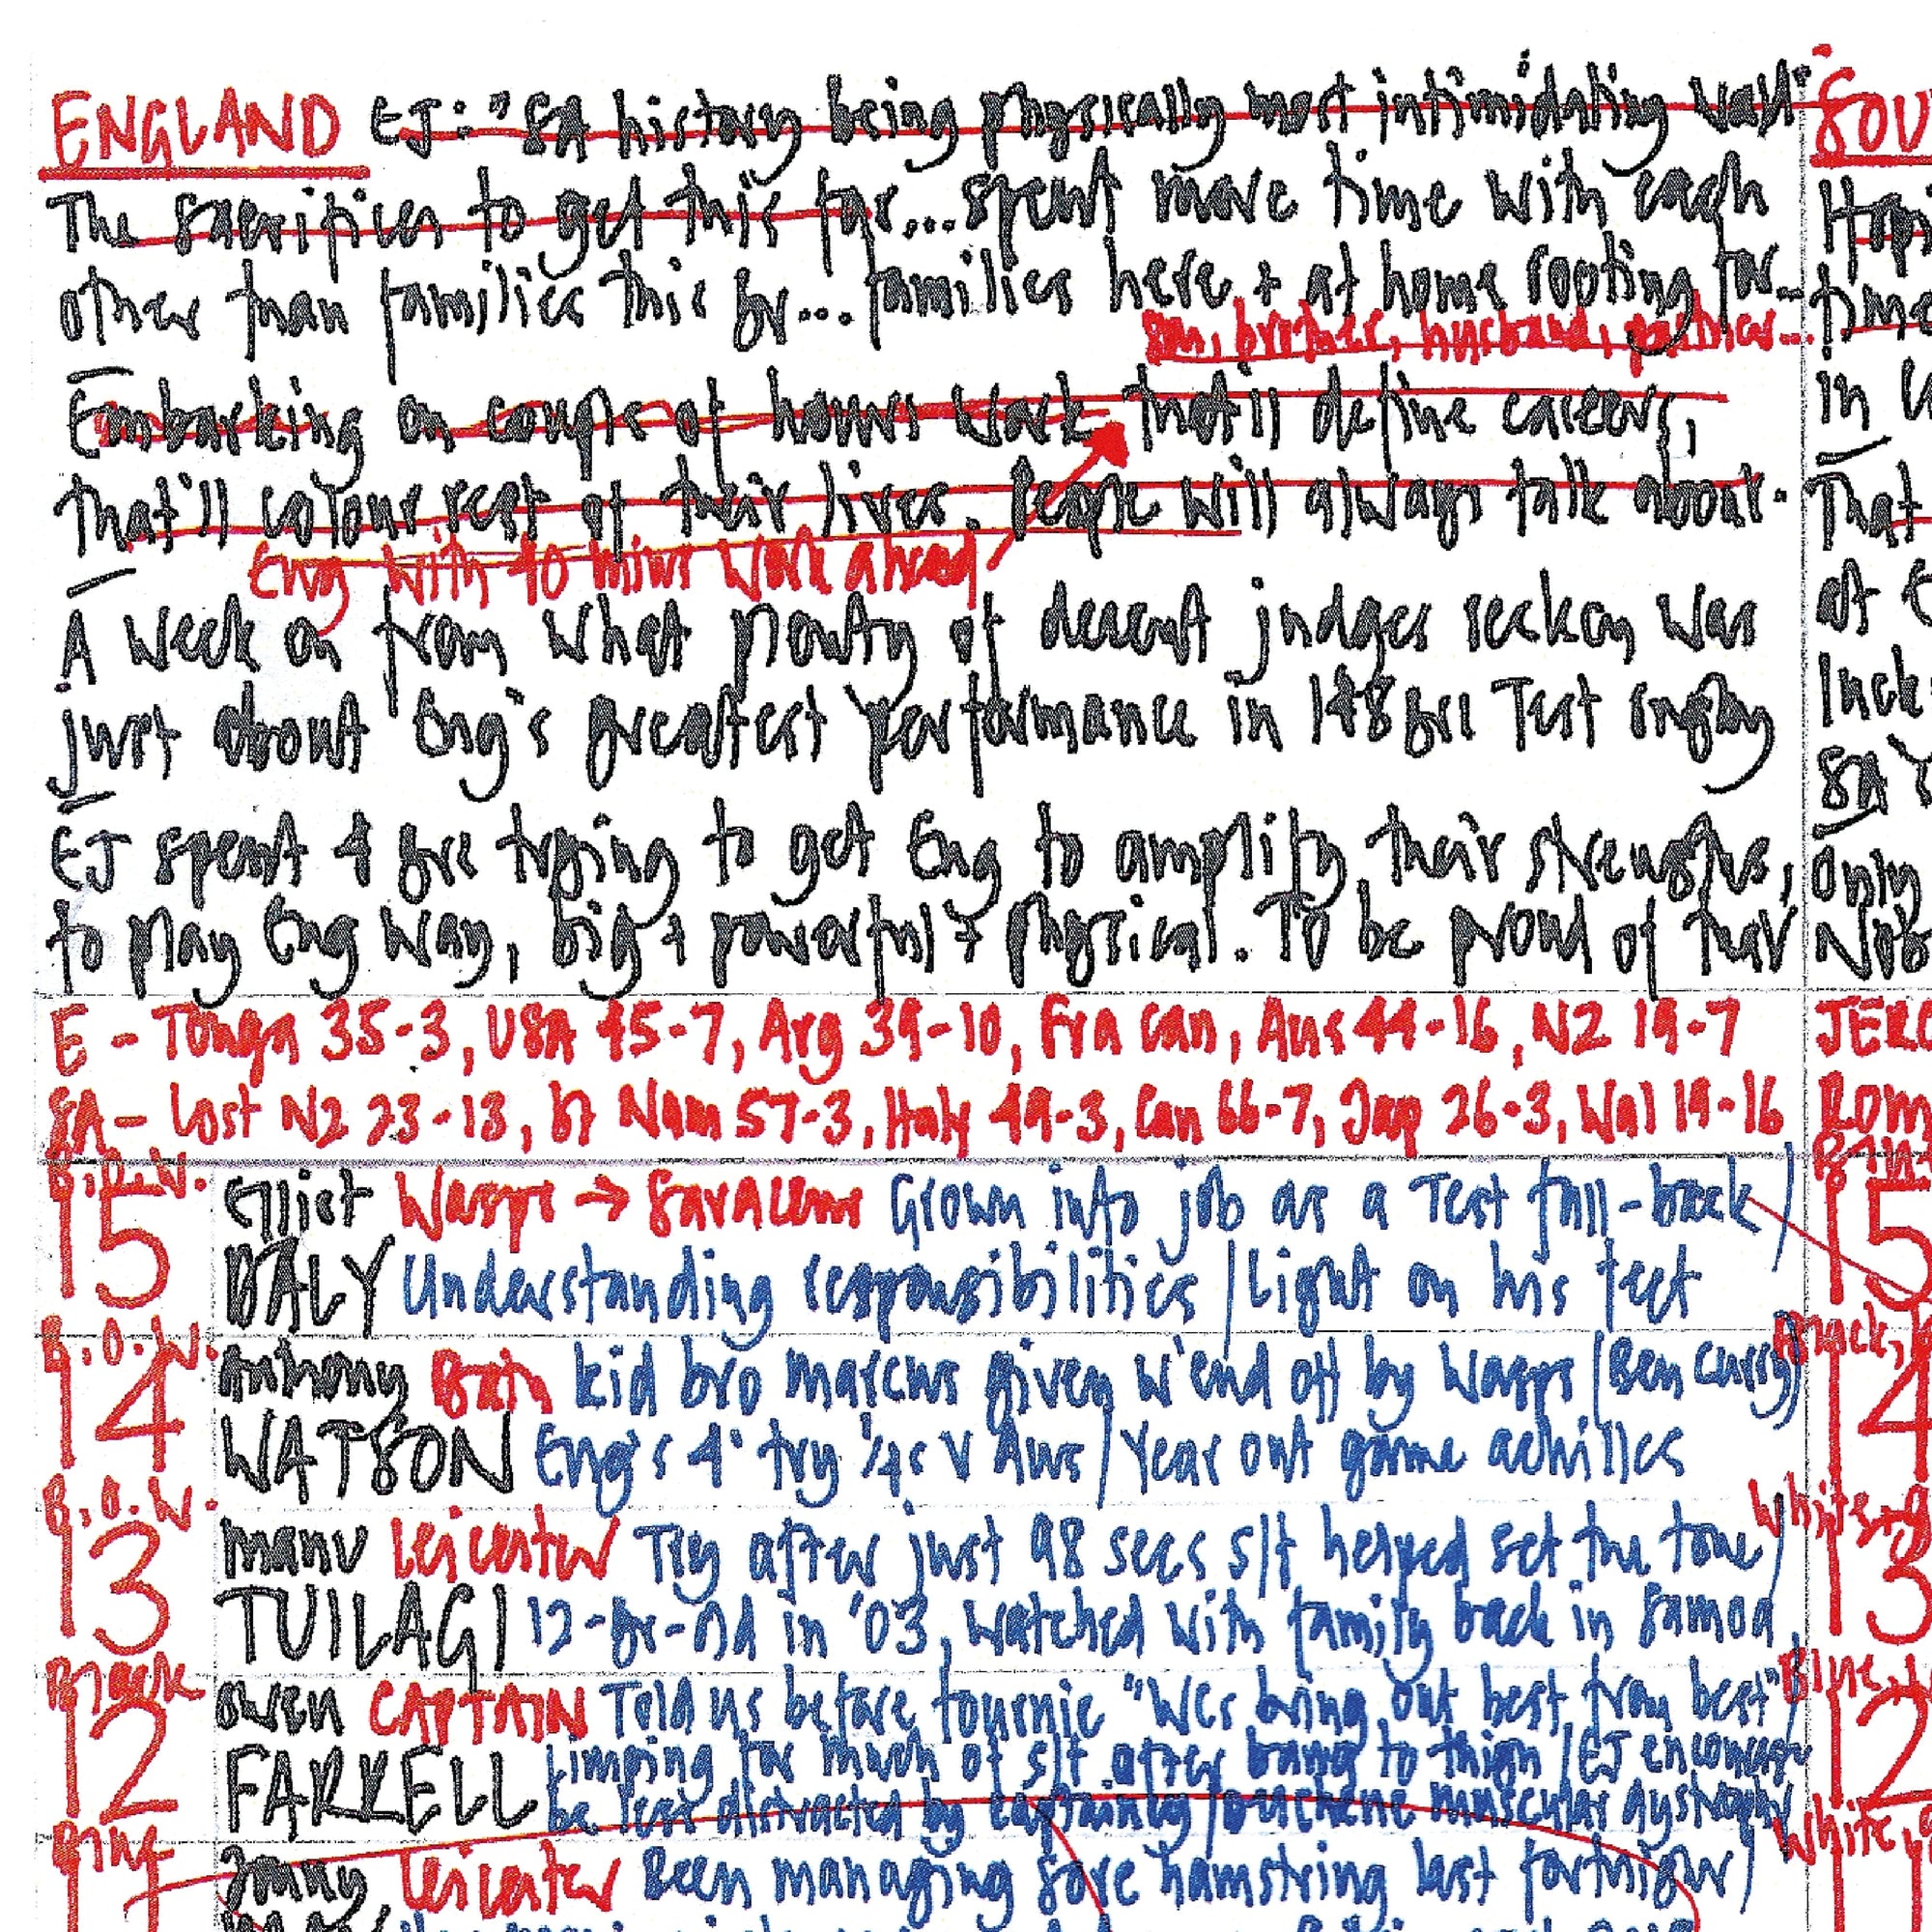 ENGLAND EJ: "SA history being physically most intimidating
The sacrifices to get this far...spent more time with each
other than families this yr... families here + at home rooting for...
son, brother, husband, partner...
Embarking on couple of hours work that'll define careers,
that'll colour rest of their lives. People will always talk about.
Eng with 40 mins work ahead
A week on from what plenty of decent judges reckon was
just about Eng's greatest performance in 148 yrs Test rugby
EJ spent 4 yrs trying to get Eng to amplify their strengths,
to play Eng way, big + powerful + physical. To be proud of their
E - Tonga 35-3, USA 45-7, Arg 39-10, Fra can, Aus 44-16, NZ 19-7
SA - Lost NZ 23-13, bt Nam 57-3, Italy 49-3, Can 66-7, Jap 26-3, Wal 19-16
15 Elliot Wasps → Saracens Grown into job as a Test full-back/
DALY Understanding responsibilities / Light on his feet
B.O.W.
14 Anthony Bath kid bro Marcus given w'end off by Wasps (Ben Curry)
WATSON Eng's 4th try 1/4s v Aus / Year out game achilles
B.O.W.
13 Manu Leicester Try after just 98 secs s/f helped set the tone/
TUILAGI 12-yr-old in '03, watched with family back in Samoa
Black
12 Owen CAPTAIN Told us before tournie "Wes bring out best from best"
FARRELL Limping for much of s/f after bang to thigh / EJ encourage
be less distracted by captaincy / Duchene muscular dystrophy
Jonny Leicester Been managing sore hamstring last fortnight/
SOU
time
in
That
at
luck
SA
only
JER
ROM
15
14
White +
13
Blue
12
White